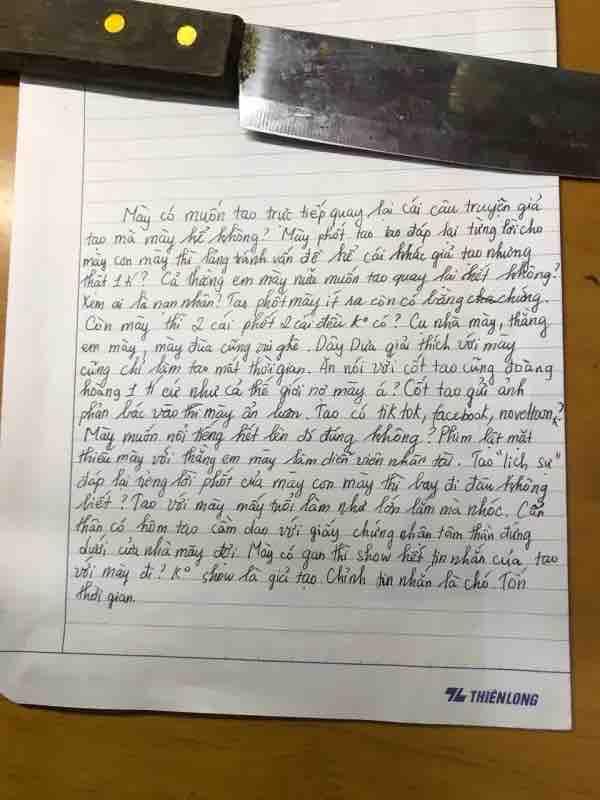 Mày có muốn tao trực tiếp quay lại cái câu truyện giả
tạo mà mày kể không? Mày phốt tao tao đáp lại từng lời cho
mày con mày thì lãng tránh vấn đề kể cái khác giả tạo nhưng
thật 1 tí? Cả thằng em mày nữa muốn tao quay lại hết không?
Xem ai là nạn nhân? Tao phốt mày ít ra còn có bằng chứng.
Còn mày thì 2 cái phốt 2 cái đều K° có? Cu nhà mày, thằng
em mày, mày đùa cũng vui ghê. Dây Dưa giải thích với mày
cũng chỉ làm tao mất thời gian. Ăn nói với cốt tao cũng đoàng
hoàng 1 tí cứ như cả thế giới nợ mày á? Cốt tao gửi ảnh
phản bác vào thì mày ẩn luôn. Tao có tik tok, facebook, noveltoon,
Mày muốn nổi tiếng hết lên đó đúng không? Phim lật mặt
thiếu mày với thằng em mày làm diễn viên nhân tài. Tao "lịch sự"
đáp lại từng lời phốt của mày con mày thì bay đi đâu không
biết? Tao với mày mấy tuổi làm như lớn lắm mà nhóc. Cẩn
thận có hôm tao cầm dao với giấy chứng nhận tâm thần đứng
dưới cửa nhà mày đợi. Mày có gan thì show hết tin nhắn của tao
với mày đi? K° show là giả tạo. Chỉnh tin nhắn là chó. Tốn
thời gian.
THIÊN LONG